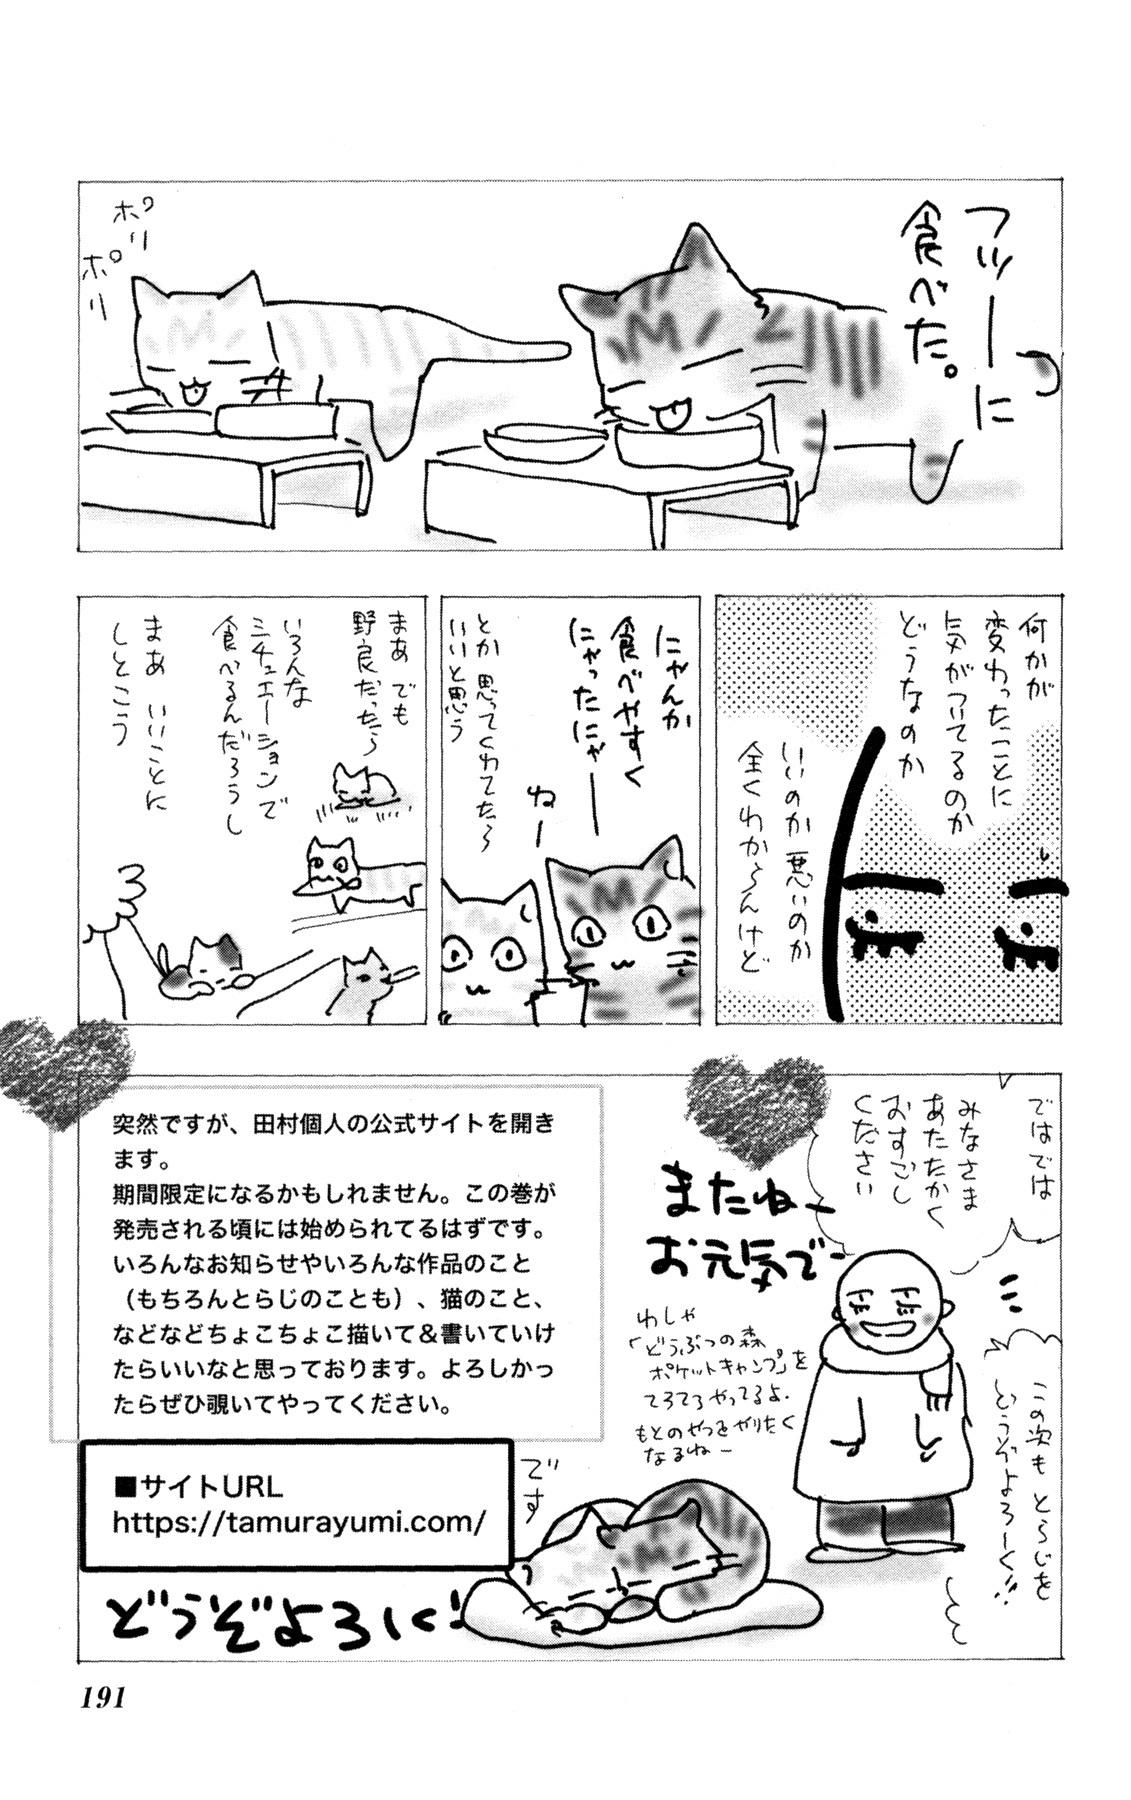 フツーに
食べた。
ポリ
ポリ
何かが
変わったことに
気がついてるのか
どうなのか
いいのか悪いのか
全くわからんけど
にゃんか
食べやすく
にゃったにゃー
ねー
とか思ってくれてたら
いいと思う
まあでも
野良だったら
いろんな
シチュエーションで
食べるんだろうし
まあいいことに
しとこう
ではでは
みなさま
あたたかく
おすごし
ください
この次もとらじを
どうぞよろーく!!
またねー
お元気でー
わしゃ
「どうぶつの森
ポケットキャンプ」を
てろてろやってるよ.
もとのやつをやりたく
なるねー
突然ですが、田村個人の公式サイトを開き
ます。
期間限定になるかもしれません。この巻が
発売される頃には始められてるはずです。
いろんなお知らせやいろんな作品のこと
（もちろんとらじのことも）、猫のこと、
などなどちょこちょこ描いて＆書いていけ
たらいいなと思っております。よろしかっ
たらぜひ覗いてやってください。
■サイトURL
https://tamurayumi.com/
です
どうぞよろしく!
191